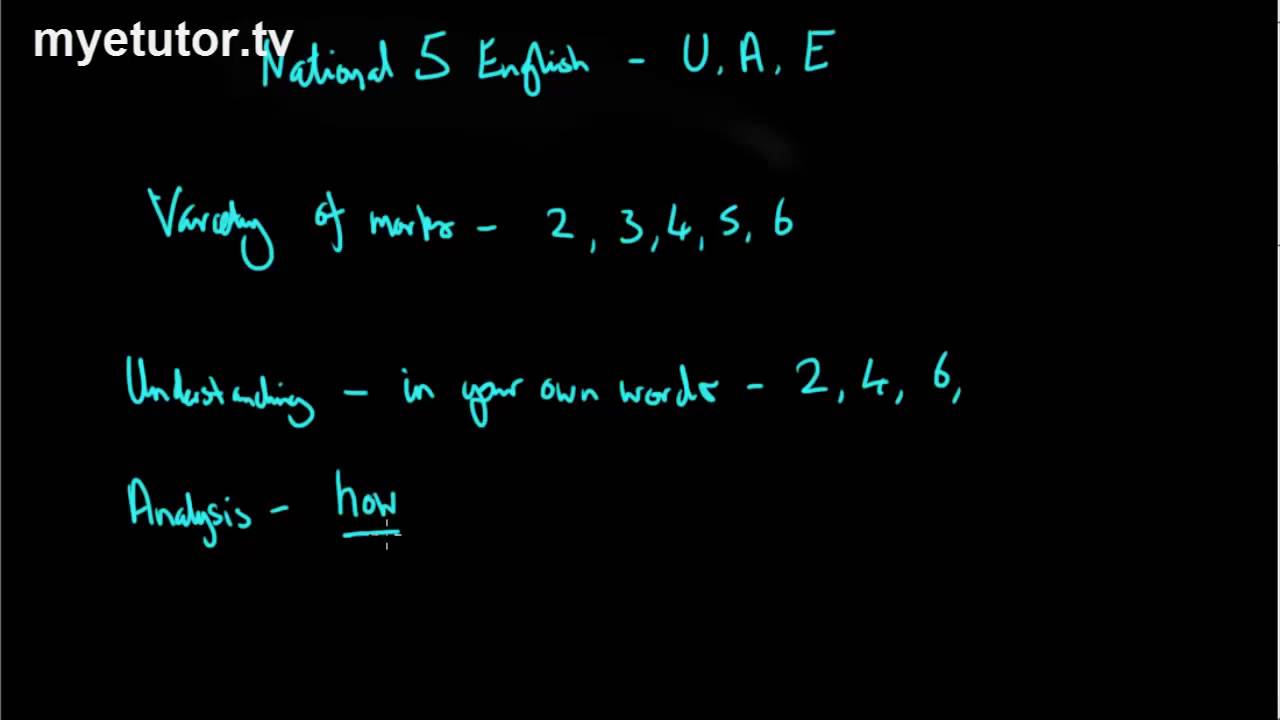 myetutor.tv
National 5 English - U, A, E
Variety of marks - 2, 3, 4, 5, 6
Understanding - in your own words - 2, 4, 6,
Analysis - how